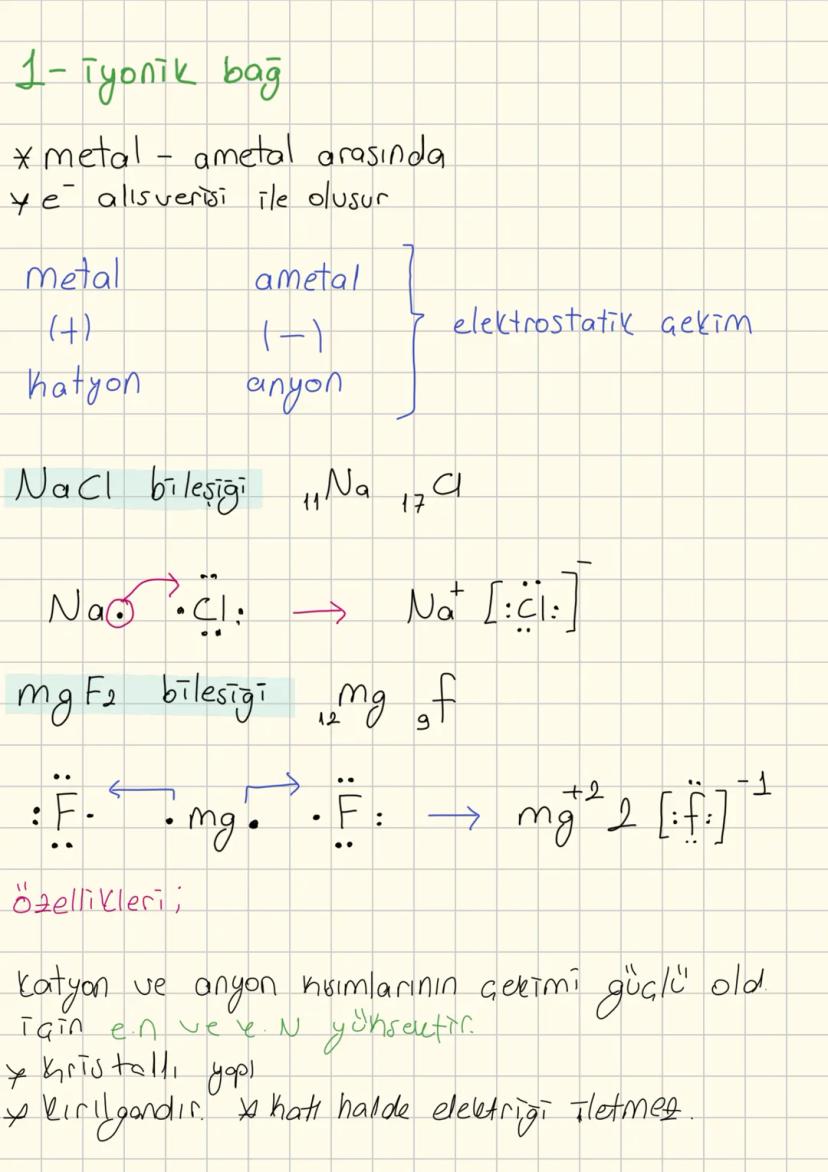 1- iyonik bağ
* metal - ametal arasında
* e⁻ alısverisi ile olusur
metal ametal
(+) (-) elektrostatik çekim
katyon anyon
NaCl bileşiği ₁₁Na ₁₇Cl
Na• •Cl: → Na⁺ [:Cl:]⁻
mgF₂ bilesiği ₁₂mg ₉f
:F• •mg• •F: → mg⁺² 2 [:f:]⁻¹
özellikleri;
katyon ve anyon kısımlarının çekimi güçlü old.
için e.n ve k.N yüksektir.
* kristalli yapı
* kırılgandır. * katı halde elektriği iletmez.